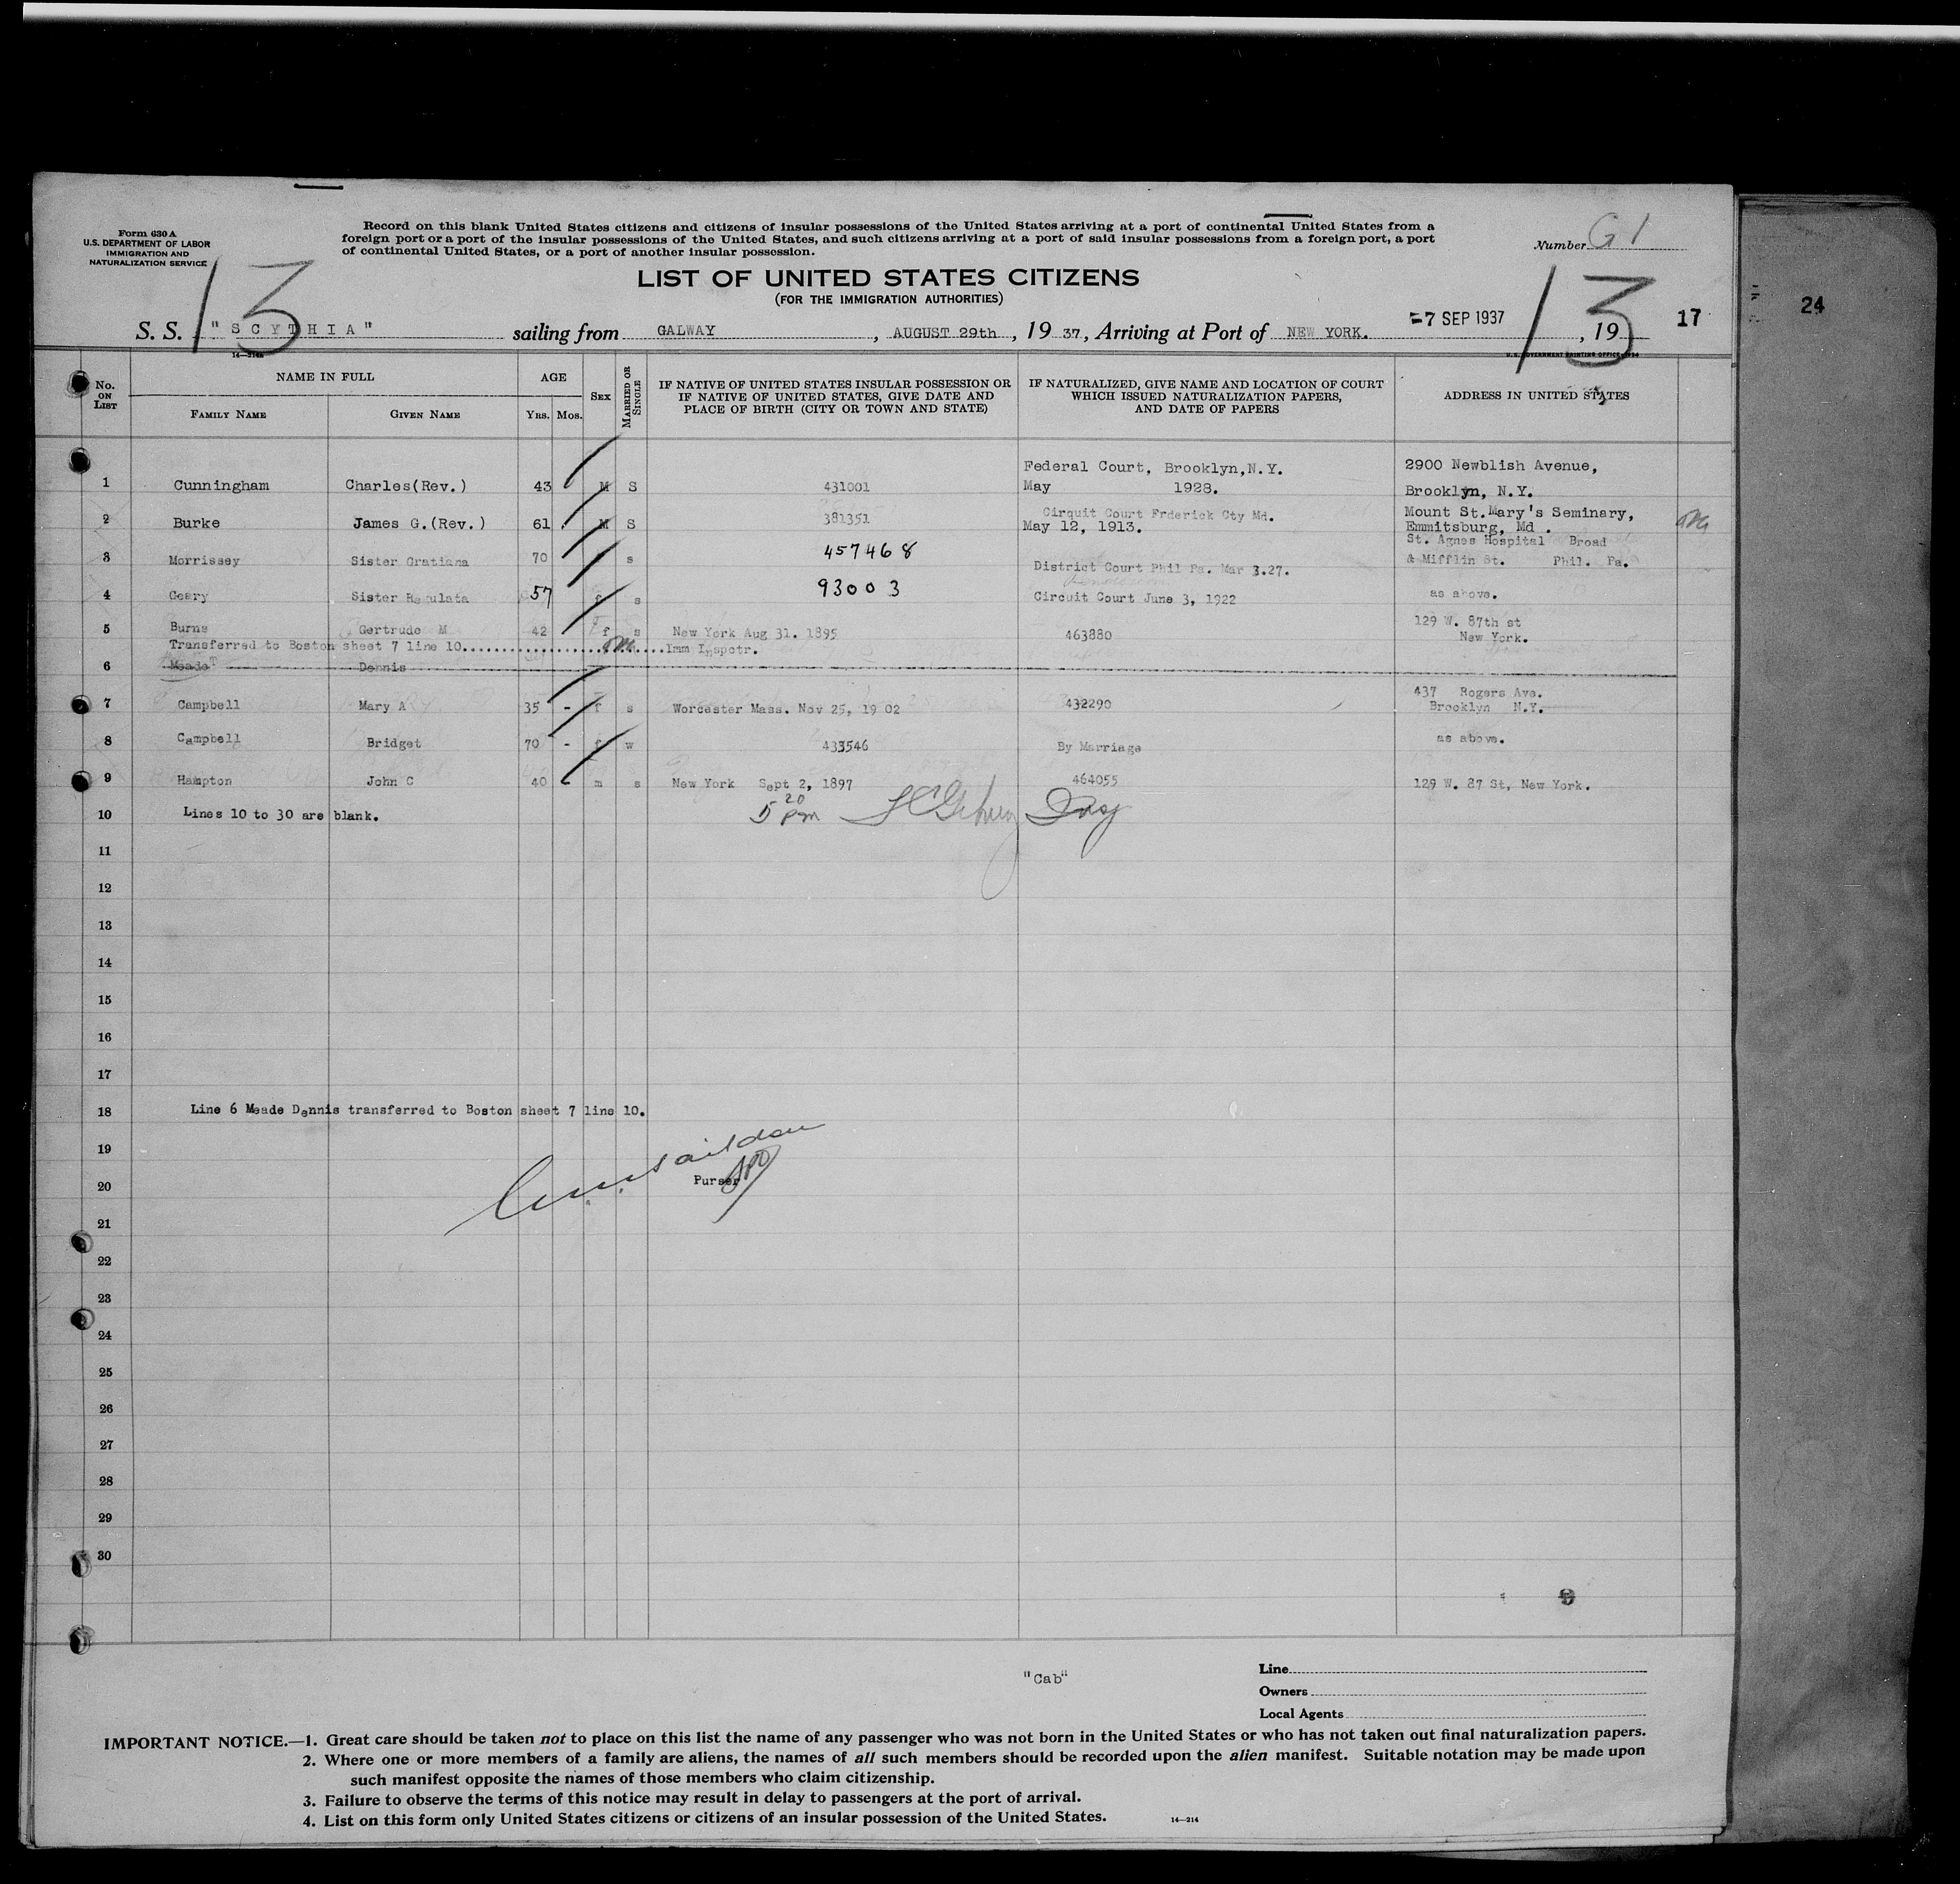 Form 630 A
U.S. DEPARTMENT OF LABOR
IMMIGRATION AND
NATURALIZATION SERVICE
Record on this blank United States citizens and citizens of insular possessions of the United States arriving at a port of continental United States from a
foreign port or a port of the insular possessions of the United States, and such citizens arriving at a port of said insular possessions from a foreign port, a port
of continental United States, or a port of another insular possession.
Number G 1
LIST OF UNITED STATES CITIZENS
(FOR THE IMMIGRATION AUTHORITIES)
13
13
S. S. "SCYTHIA" sailing from GALWAY, AUGUST 29th, 19 37, Arriving at Port of NEW YORK. -7 SEP 1937, 19
17
24
14—214a
U. S. GOVERNMENT PRINTING OFFICE: 1934
No. ON LIST
NAME IN FULL
FAMILY NAME
GIVEN NAME
AGE
YRS. MOS.
SEX
MARRIED OR SINGLE
IF NATIVE OF UNITED STATES INSULAR POSSESSION OR
IF NATIVE OF UNITED STATES, GIVE DATE AND
PLACE OF BIRTH (CITY OR TOWN AND STATE)
IF NATURALIZED, GIVE NAME AND LOCATION OF COURT
WHICH ISSUED NATURALIZATION PAPERS,
AND DATE OF PAPERS
ADDRESS IN UNITED STATES
Federal Court, Brooklyn,N.Y. 2900 Newblish Avenue,
1 Cunningham Charles(Rev.) 43 M S 431001 May 1928. Brooklyn, N.Y.
2 Burke James G.(Rev.) 61 M S 381351 Cirquit Court Frderick Cty Md. Mount St.Mary's Seminary,
May 12, 1913. Emmitsburg, Md .
3 Morrissey Sister Gratiana 70 s 457468 St. Agnes Hospital Broad
District Court Phil Pa. Mar 3.27. & Mifflin St. Phil. Pa.
4 Geary Sister Regulata 57 f s 93003 Circuit Court June 3, 1922 as above.
5 Burns Gertrude M 42 f s New York Aug 31. 1895 463880 129 W. 87th st
New York.
Transferred to Boston sheet 7 line 10. Imm Inspctr.
6 Meade Dennis
7 Campbell Mary A 35 - f s Worcester Mass. Nov 25, 19 02 432290 437 Rogers Ave.
Brooklyn N.Y.
8 Campbell Bridget 70 - f w 433546 By Marriage as above.
9 Hampton John C 40 m s New York Sept 2, 1897 464055 129 W. 87 St, New York.
10 Lines 10 to 30 are blank. 5 20 pm
11
12
13
14
15
16
17
18 Line 6 Meade Dennis transferred to Boston sheet 7 line 10.
19
20 Purser
21
22
23
24
25
26
27
28
29
30
"Cab"
Line
Owners
Local Agents
IMPORTANT NOTICE.—1. Great care should be taken not to place on this list the name of any passenger who was not born in the United States or who has not taken out final naturalization papers.
2. Where one or more members of a family are aliens, the names of all such members should be recorded upon the alien manifest. Suitable notation may be made upon
such manifest opposite the names of those members who claim citizenship.
3. Failure to observe the terms of this notice may result in delay to passengers at the port of arrival.
4. List on this form only United States citizens or citizens of an insular possession of the United States.
14—214